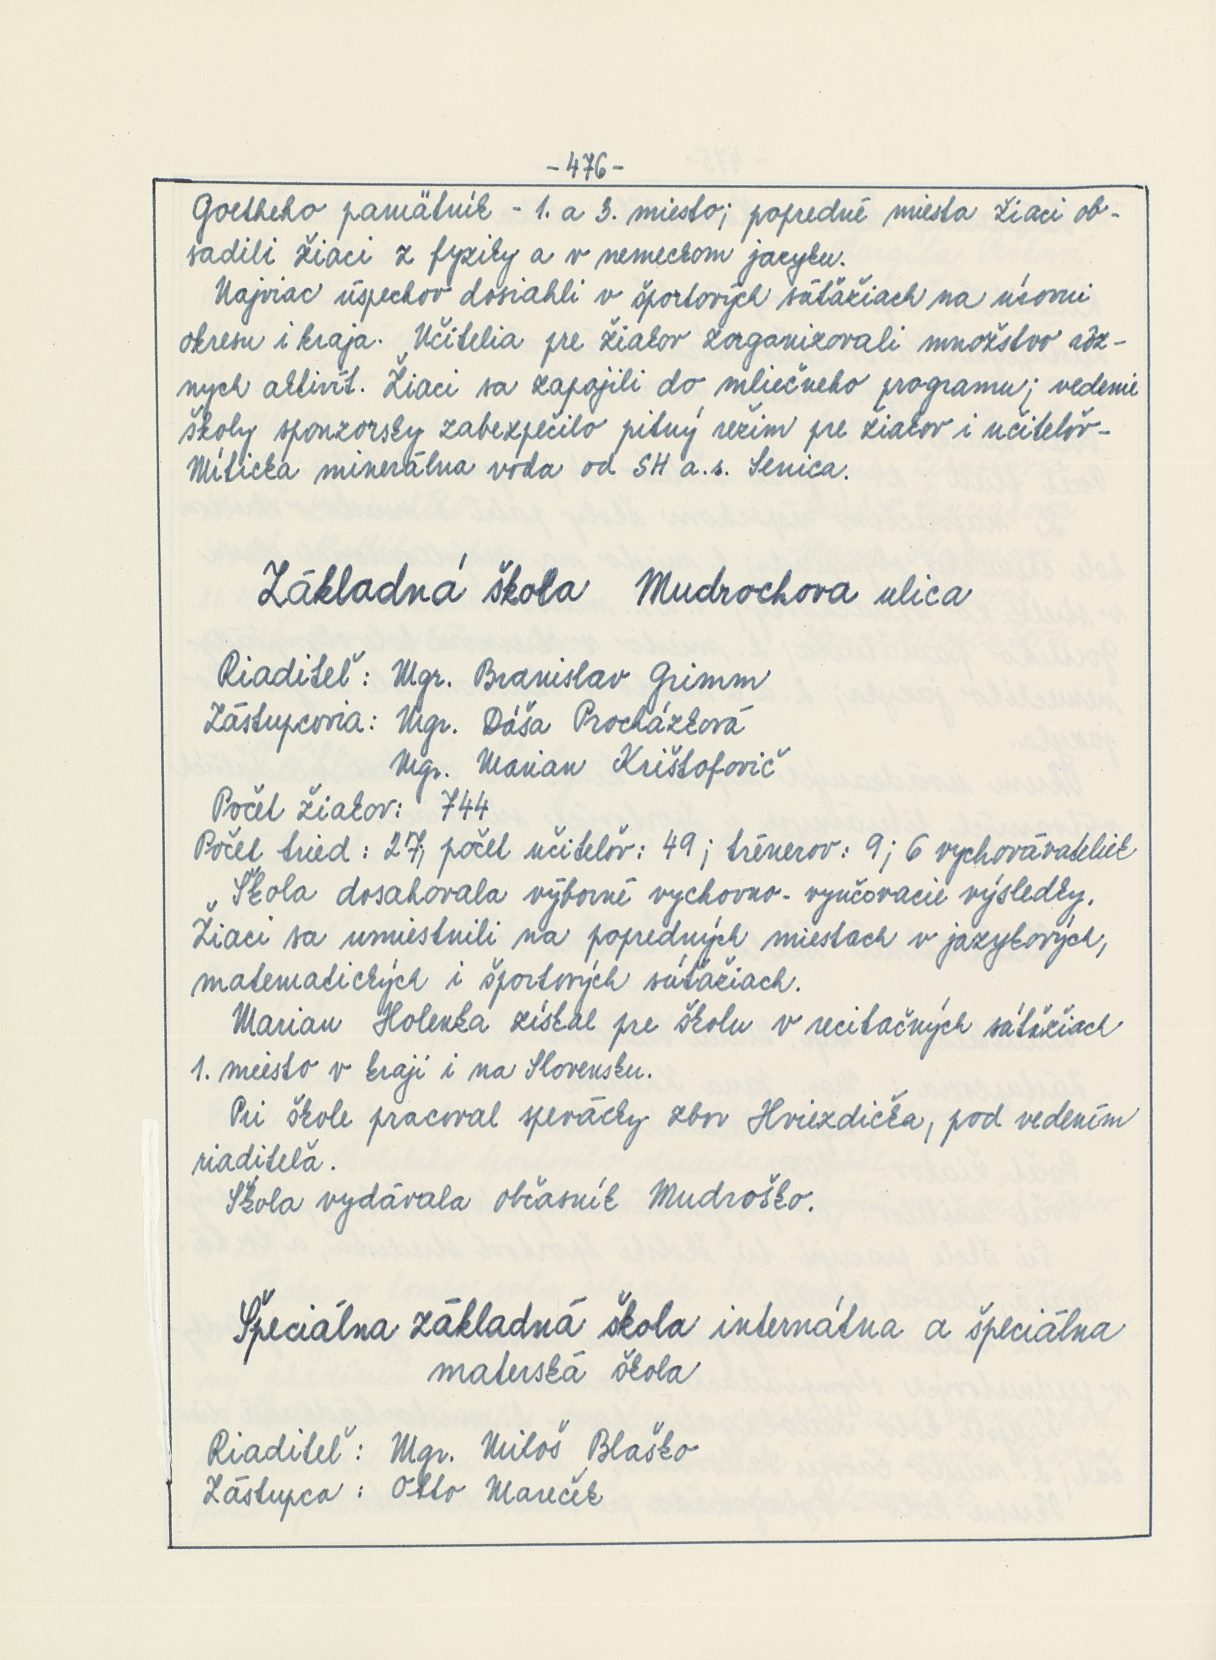 -476-
Goetheho pamätník - 1. a 3. miesto; popredné miesta žiaci ob-
sadili žiaci z fyziky a v nemeckom jazyku.
Najviac úspechov dosiahli v športových súťažiach na úrovni
okresu i kraja. Učitelia pre žiakov zorganizovali množstvo rôz-
nych aktivít. Žiaci sa zapojili do mliečneho programu; vedenie
školy sponzorsky zabezpečilo pitný režim pre žiakov i učiteľov-
Mitická minerálna voda od SH a.s. Senica.
Základná škola Mudrochova ulica
Riaditeľ: Mgr. Branislav Grimm
Zástupcovia: Mgr. Dáša Procházková
Mgr. Marian Krištofovič
Počet žiakov: 744
Počet tried: 27; počet učiteľov: 49; trénerov: 9; 6 vychovávateliek
Škola dosahovala výborné vychovno-vyučovacie výsledky.
Žiaci sa umiestnili na popredných miestach v jazykových,
matematických i športových súťažiach.
Marian Holenka získal pre školu v recitačných súťažiach
1. miesto v kraji i na Slovensku.
Pri škole pracoval spevácky zbor Hviezdička, pod vedením
riaditeľa.
Škola vydávala občasník Mudroško.
Špeciálna základná škola internátna a špeciálna
materská škola
Riaditeľ: Mgr. Miloš Blaško
Zástupca: Otto Mareček